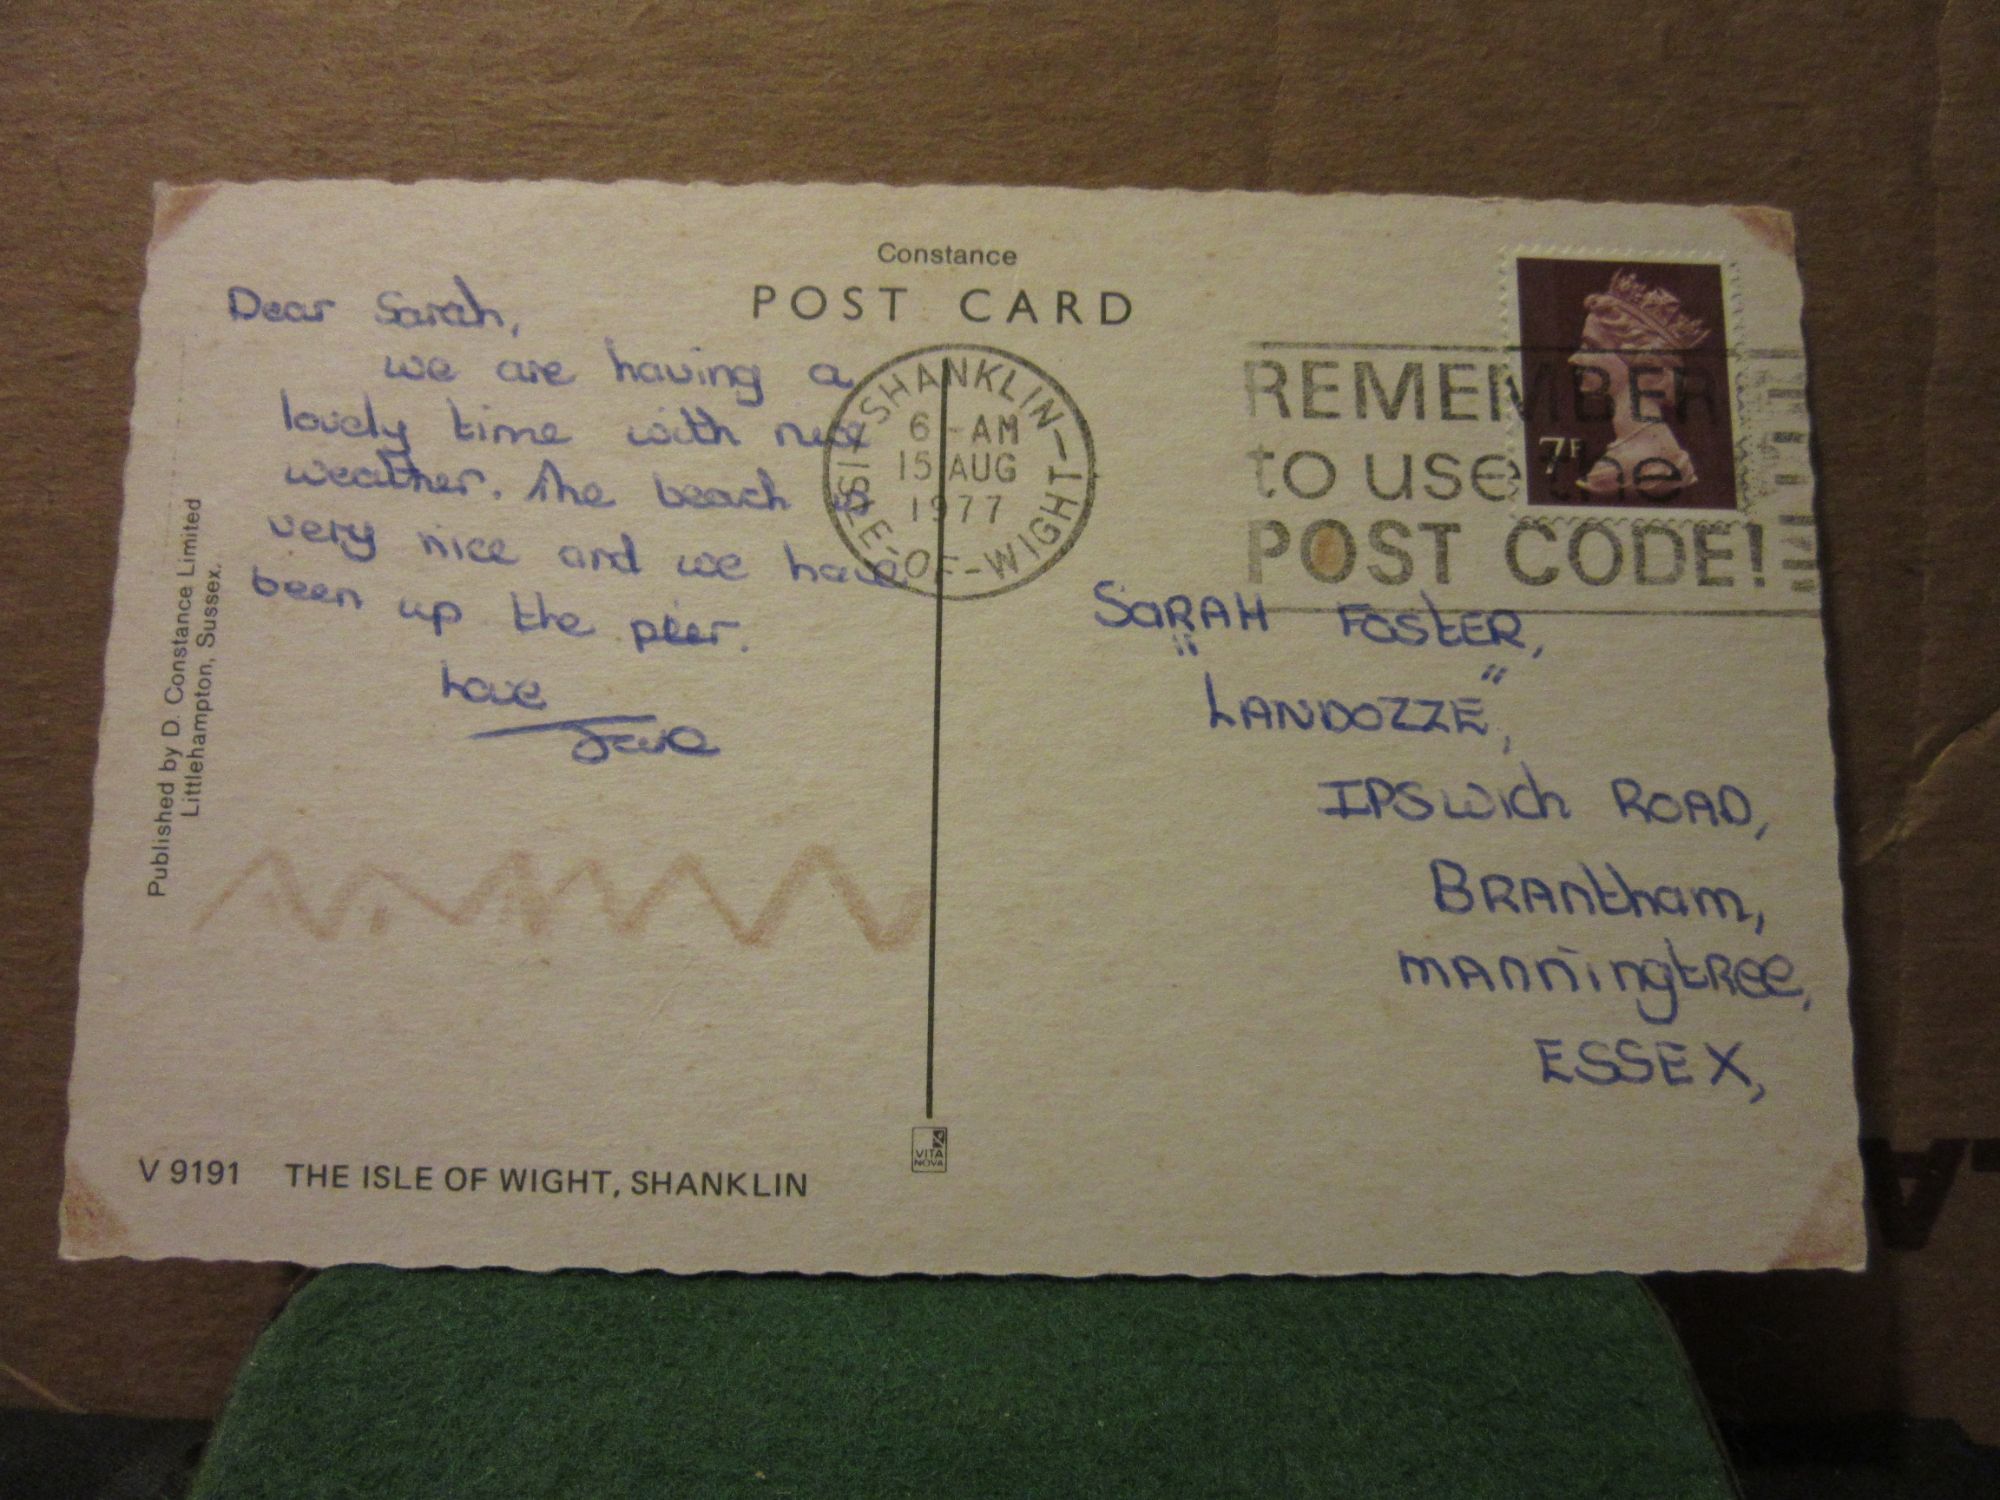 Constance
POST CARD
Dear Sarah,
we are having a
lovely time with nice
weather. The beach is
very nice and we have
been up the pier.
Love
SHANKLIN
ISLE-OF-WIGHT
6 - AM
15 AUG
1977
REMEMBER
to use the
POST CODE!
7P
SARAH FOSTER,
"LANDOZZE",
IPSwich ROAD,
BRAntham,
mAnningtRee,
ESSEX,
Published by D. Constance Limited
Littlehampton, Sussex.
V 9191 THE ISLE OF WIGHT, SHANKLIN
VITA
NOVA